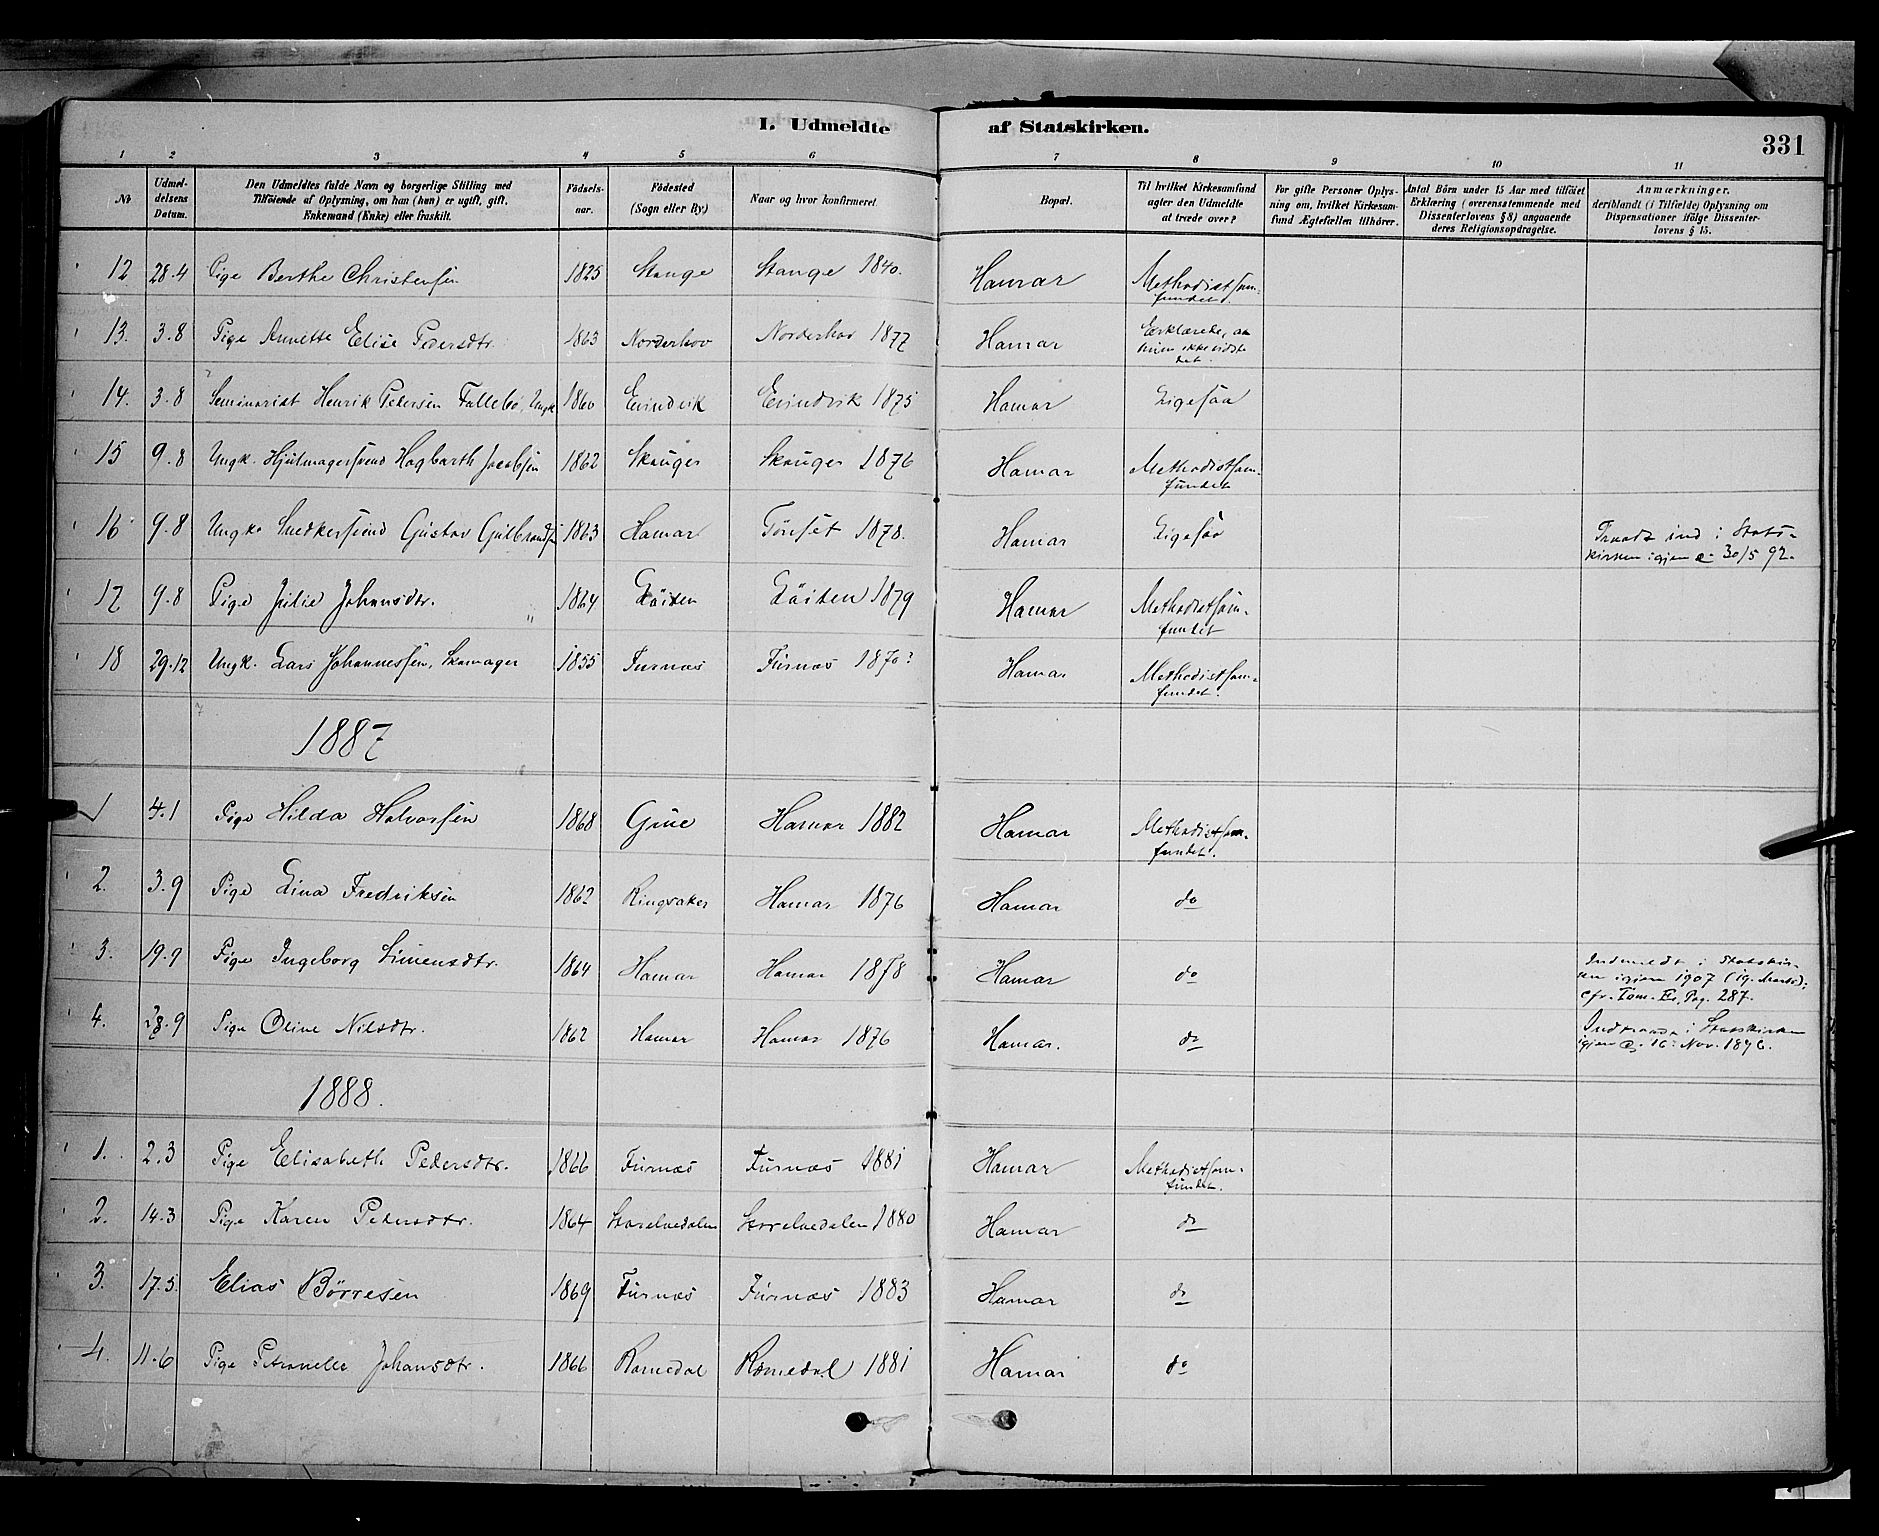 I. Udmeldte af Statskirken.
331
1 2 3 4 5 6 7 8 9 10 11
No
Udmel-
delsens
Datum.
Den Udmeldtes fulde Navn og borgerlige Stilling med
Tilföiende af Oplysning, om han (hun) er ugift, gift,
Enkemand (Enke) eller fraskilt.
Födsels-
aar.
Födested
(Sogn eller By.)
Naar og hvor konfirmeret.
Bopæl.
Til hvilket Kirkesamfund
agter den Udmeldte
at træde over?
For gifte Personer Oplys-
ning om, hvilket Kirkesam-
fund Ægtefællen tilhörer.
Antal Börn under 15 Aar med tilföiet
Erklæring (overensstemmende med
Dissenterlovens § 8) angaaende
deres Religionsopdragelse.
Anmærkninger,
deriblandt (i Tilfælde) Oplysning om
Dispensationer ifölge Dissenter-
lovens § 15.
12 28.4 Pige Berthe Christensen 1825 Stange Stange 1840. Hamar Methodistsam-
fundet
13. 3.8 Pige Annette Elise Pedersdtr. 1863 Norderhov Norderhov 1877 Hamar Erklærede, at
hun ikke vidste
det.
14. 3.8 Seminarist Henrik Petersen Fallebö, Ungk. 1860 Evindvik Evindvik 1875 Hamar Ligesaa
15 9.8 Ungk. Hjulmagersvend Hagbarth Jacobsen 1862 Skauger Skauger 1876 Hamar Methodistsam-
fundet
16 9.8 Ungk. Snedkersvend Gustav Gulbrandsen 1863 Hamar Tönset 1878. Hamar Ligesaa Traadt ind i Stats-
kirken igjen 30/5 92.
17 9.8 Pige Julie Johansdtr. 1864 Löiten Löiten 1879 Hamar Methodistsam-
fundet
18 29.12 Ungk. Lars Johannessen, Skomager 1855 Furnæs Furnæs 1870? Hamar Methodistsam-
fundet.
1887
1 4.1 Pige Hilda Halvorsen 1868 Grue Hamar 1882 Hamar Methodistsam-
fundet.
2. 3.9 Pige Lina Fredriksen 1862 Ringsaker Hamar 1876 Hamar do
3. 19.9 Pige Ingeborg Simensdtr. 1864 Hamar Hamar 1878 Hamar do Indmeldt i Statskir-
ken igjen 1907 (19. Marts);
cfr. Pag. 287.
4. 28.9 Pige Oline Nilsdtr. 1862 Hamar Hamar 1876 Hamar. do Indtraadt i Statskirken
igjen 16. Nov. 1896.
1888.
1. 2.3 Pige Elisabeth Pedersdtr. 1866 Furnæs Furnæs 1881 Hamar Methodistsam-
fundet.
2. 14.3 Pige Karen Petersdtr. 1864 Storelvedalen Storelvedalen 1880 Hamar do
3. 17.5. Elias Börresen 1869 Furnæs Furnæs 1883 Hamar do
4. 11.6 Pige Petronelle Johansdtr. 1866 Romedal Romedal 1881 Hamar do